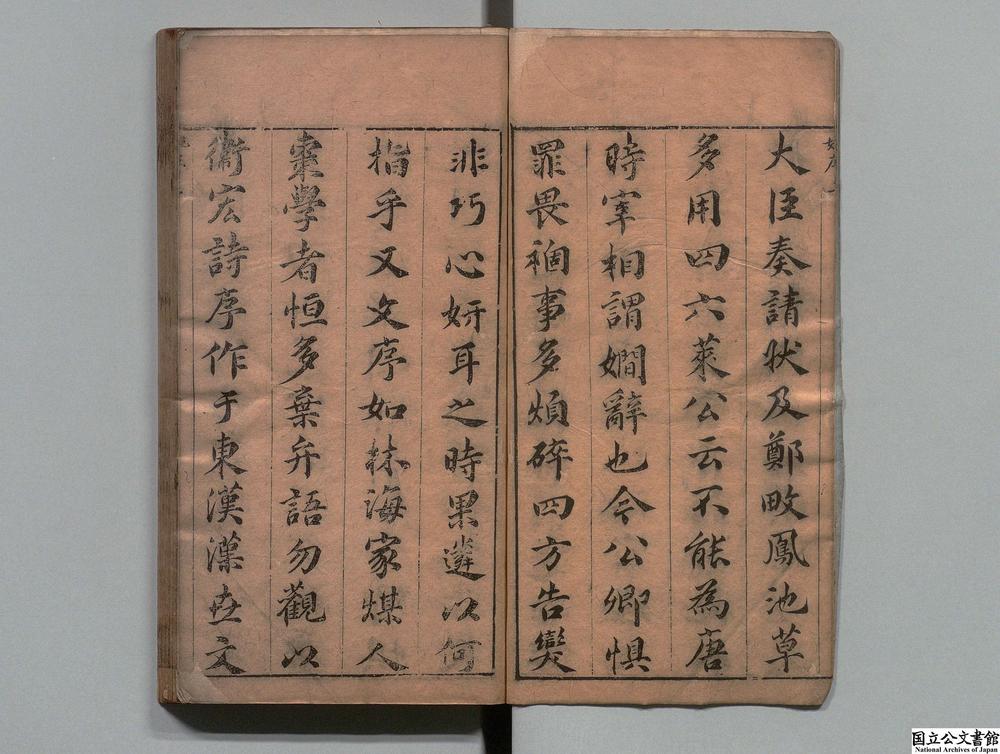 大臣奏請狀及鄭畋鳳池草
多用四六萊公云不能為唐
時宰相謂嫺辭也今公卿惧
罪畏禍事多煩碎四方告爕
非巧心妍耳之時果遴以何
指乎又文序如林海家煤人
棄學者恒多棄弁語勿觀以
衛宏詩序作于東漢漢世文
国立公文書館
National Archives of Japan